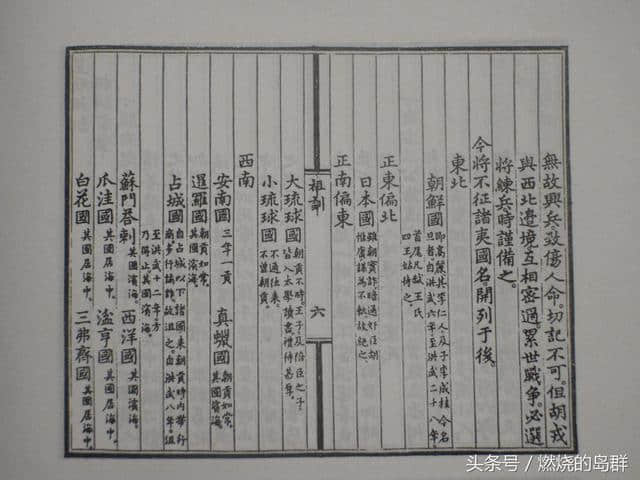 無故興兵致傷人命。切記不可。但胡戎
與西北邊境互相密邇。累世戰爭。必選
將練兵時謹備之。
今將不征諸夷國名。開列于後。
東北
朝鮮國 即高麗其李仁人及子李成桂今名
旦者自洪武六年至洪武二十八年
首尾凡弑王氏
四王姑待之
正東偏北
日本國 雖朝實詐暗通奸臣胡
惟庸謀為不軌故絕之
正南偏東
祖訓 六
大琉球國 朝貢不時王子及陪臣之子
皆入太學讀書禮待甚厚
小琉球國 不通往來
不曾朝貢
西南
安南國 三年一貢 真蠟國 朝貢如常
其國濱海
暹羅國 朝貢如常
其國濱海
占城國 自占城以下諸國來朝貢時內帶行
商多行譎詐故沮之自洪武八年沮
至洪武十二年方
乃得止其國濱海
蘇門荅剌 其國濱海 西洋國 其國濱海
爪洼國 其國居海中 湓亨國 其國居海中
白花國 其國居海中 三弗齊國 其國居海中
头条号 / 燃烧的岛群